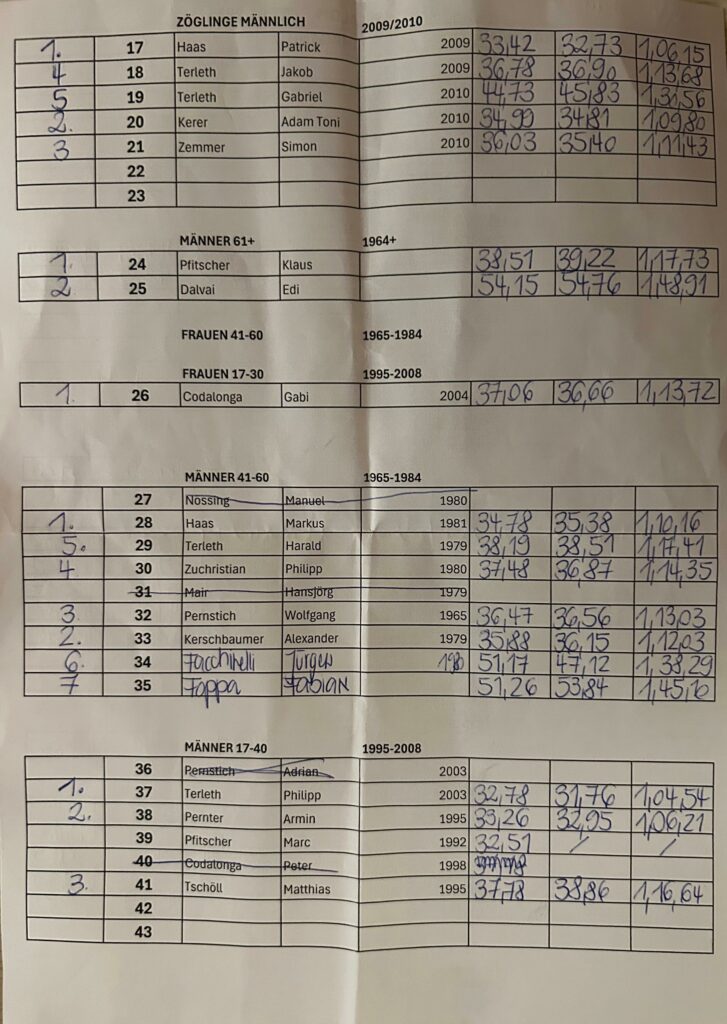 ZÖGLINGE MÄNNLICH 2009/2010
1. 17 Haas Patrick 2009 33,42 32,73 1,06,15
4 18 Terleth Jakob 2009 36,78 36,90 1,13,68
5 19 Terleth Gabriel 2010 44,73 45,83 1,31,56
2. 20 Kerer Adam Toni 2010 34,99 34,81 1,09,80
3 21 Zemmer Simon 2010 36,03 35,40 1,11,43
22
23
MÄNNER 61+ 1964+
1. 24 Pfitscher Klaus 38,51 39,22 1,17,73
2 25 Dalvai Edi 54,15 54,76 1,48,91
FRAUEN 41-60 1965-1984
FRAUEN 17-30 1995-2008
1. 26 Codalonga Gabi 2004 37,06 36,66 1,13,72
MÄNNER 41-60 1965-1984
27 Nössing Manuel 1980
1. 28 Haas Markus 1981 34,78 35,38 1,10,16
5. 29 Terleth Harald 1979 38,19 38,51 1,17,41
4 30 Zuchristian Philipp 1980 37,48 36,87 1,14,35
31 Mair Hansjörg 1979
3 32 Pernstich Wolfgang 1965 36,47 36,56 1,13,03
2. 33 Kerschbaumer Alexander 1979 35,88 36,15 1,12,03
6. 34 Facchinelli Jürgen 1980 51,17 47,12 1,38,29
7 35 Foppa FABIAN 51,26 53,84 1,45,10
MÄNNER 17-40 1995-2008
36 Pernstich Adrian 2003
1. 37 Terleth Philipp 2003 32,78 31,76 1,04,54
2. 38 Pernter Armin 1995 33,26 32,95 1,06,21
39 Pfitscher Marc 1992 32,51 / /
40 Codalonga Peter 1998
3. 41 Tschöll Matthias 1995 37,78 38,86 1,16,64
42
43